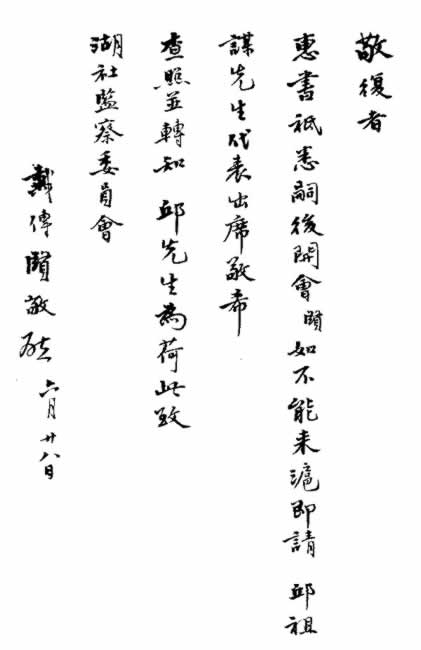 敬復者
惠書祗悉嗣後開會賢如不能来滬即請 邱祖
謀先生代表出席敬希
查照並轉知 邱先生為荷此致
湖社監察委員會
戴傳賢敬啟 六月廿八日